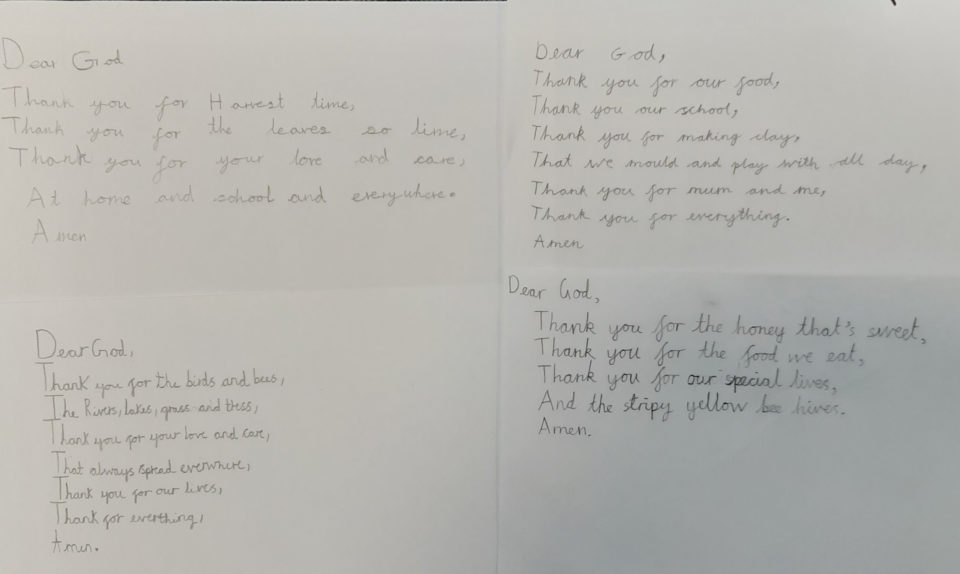 Dear God
Thank you for Harvest time,
Thank you for the leaves so lime,
Thank you for your love and care,
At home and school and everywhere.
Amen
Dear God,
Thank you for our food,
Thank you our school,
Thank you for making clay,
That we mould and play with all day,
Thank you for mum and me,
Thank you for everything.
Amen
Dear God,
Thank you for the birds and bees,
The Rivers, lakes, grass and tress,
Thank you for your love and care,
That always spread everwhere,
Thank you for our lives,
Thank for everthing,
Amen.
Dear God,
Thank you for the honey that's sweet,
Thank you for the food we eat,
Thank you for our special lives,
And the stripy yellow bee hives.
Amen.